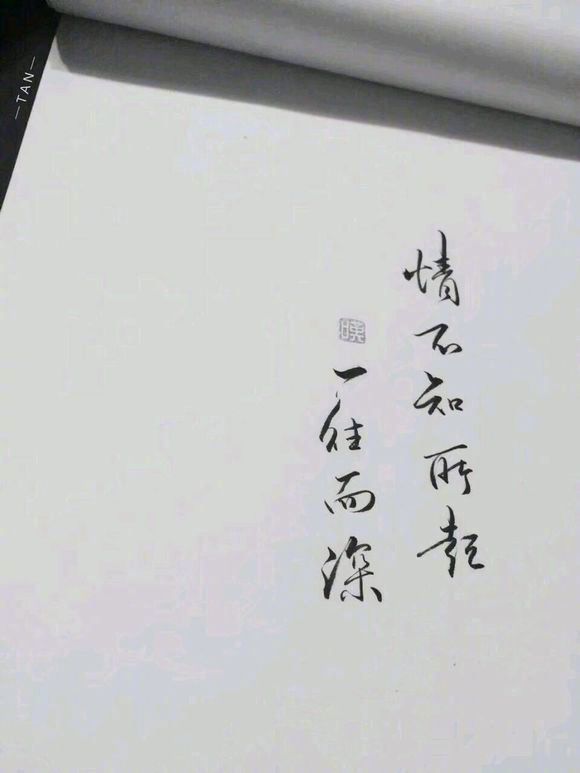 情不知所起
一往而深
—TAN—